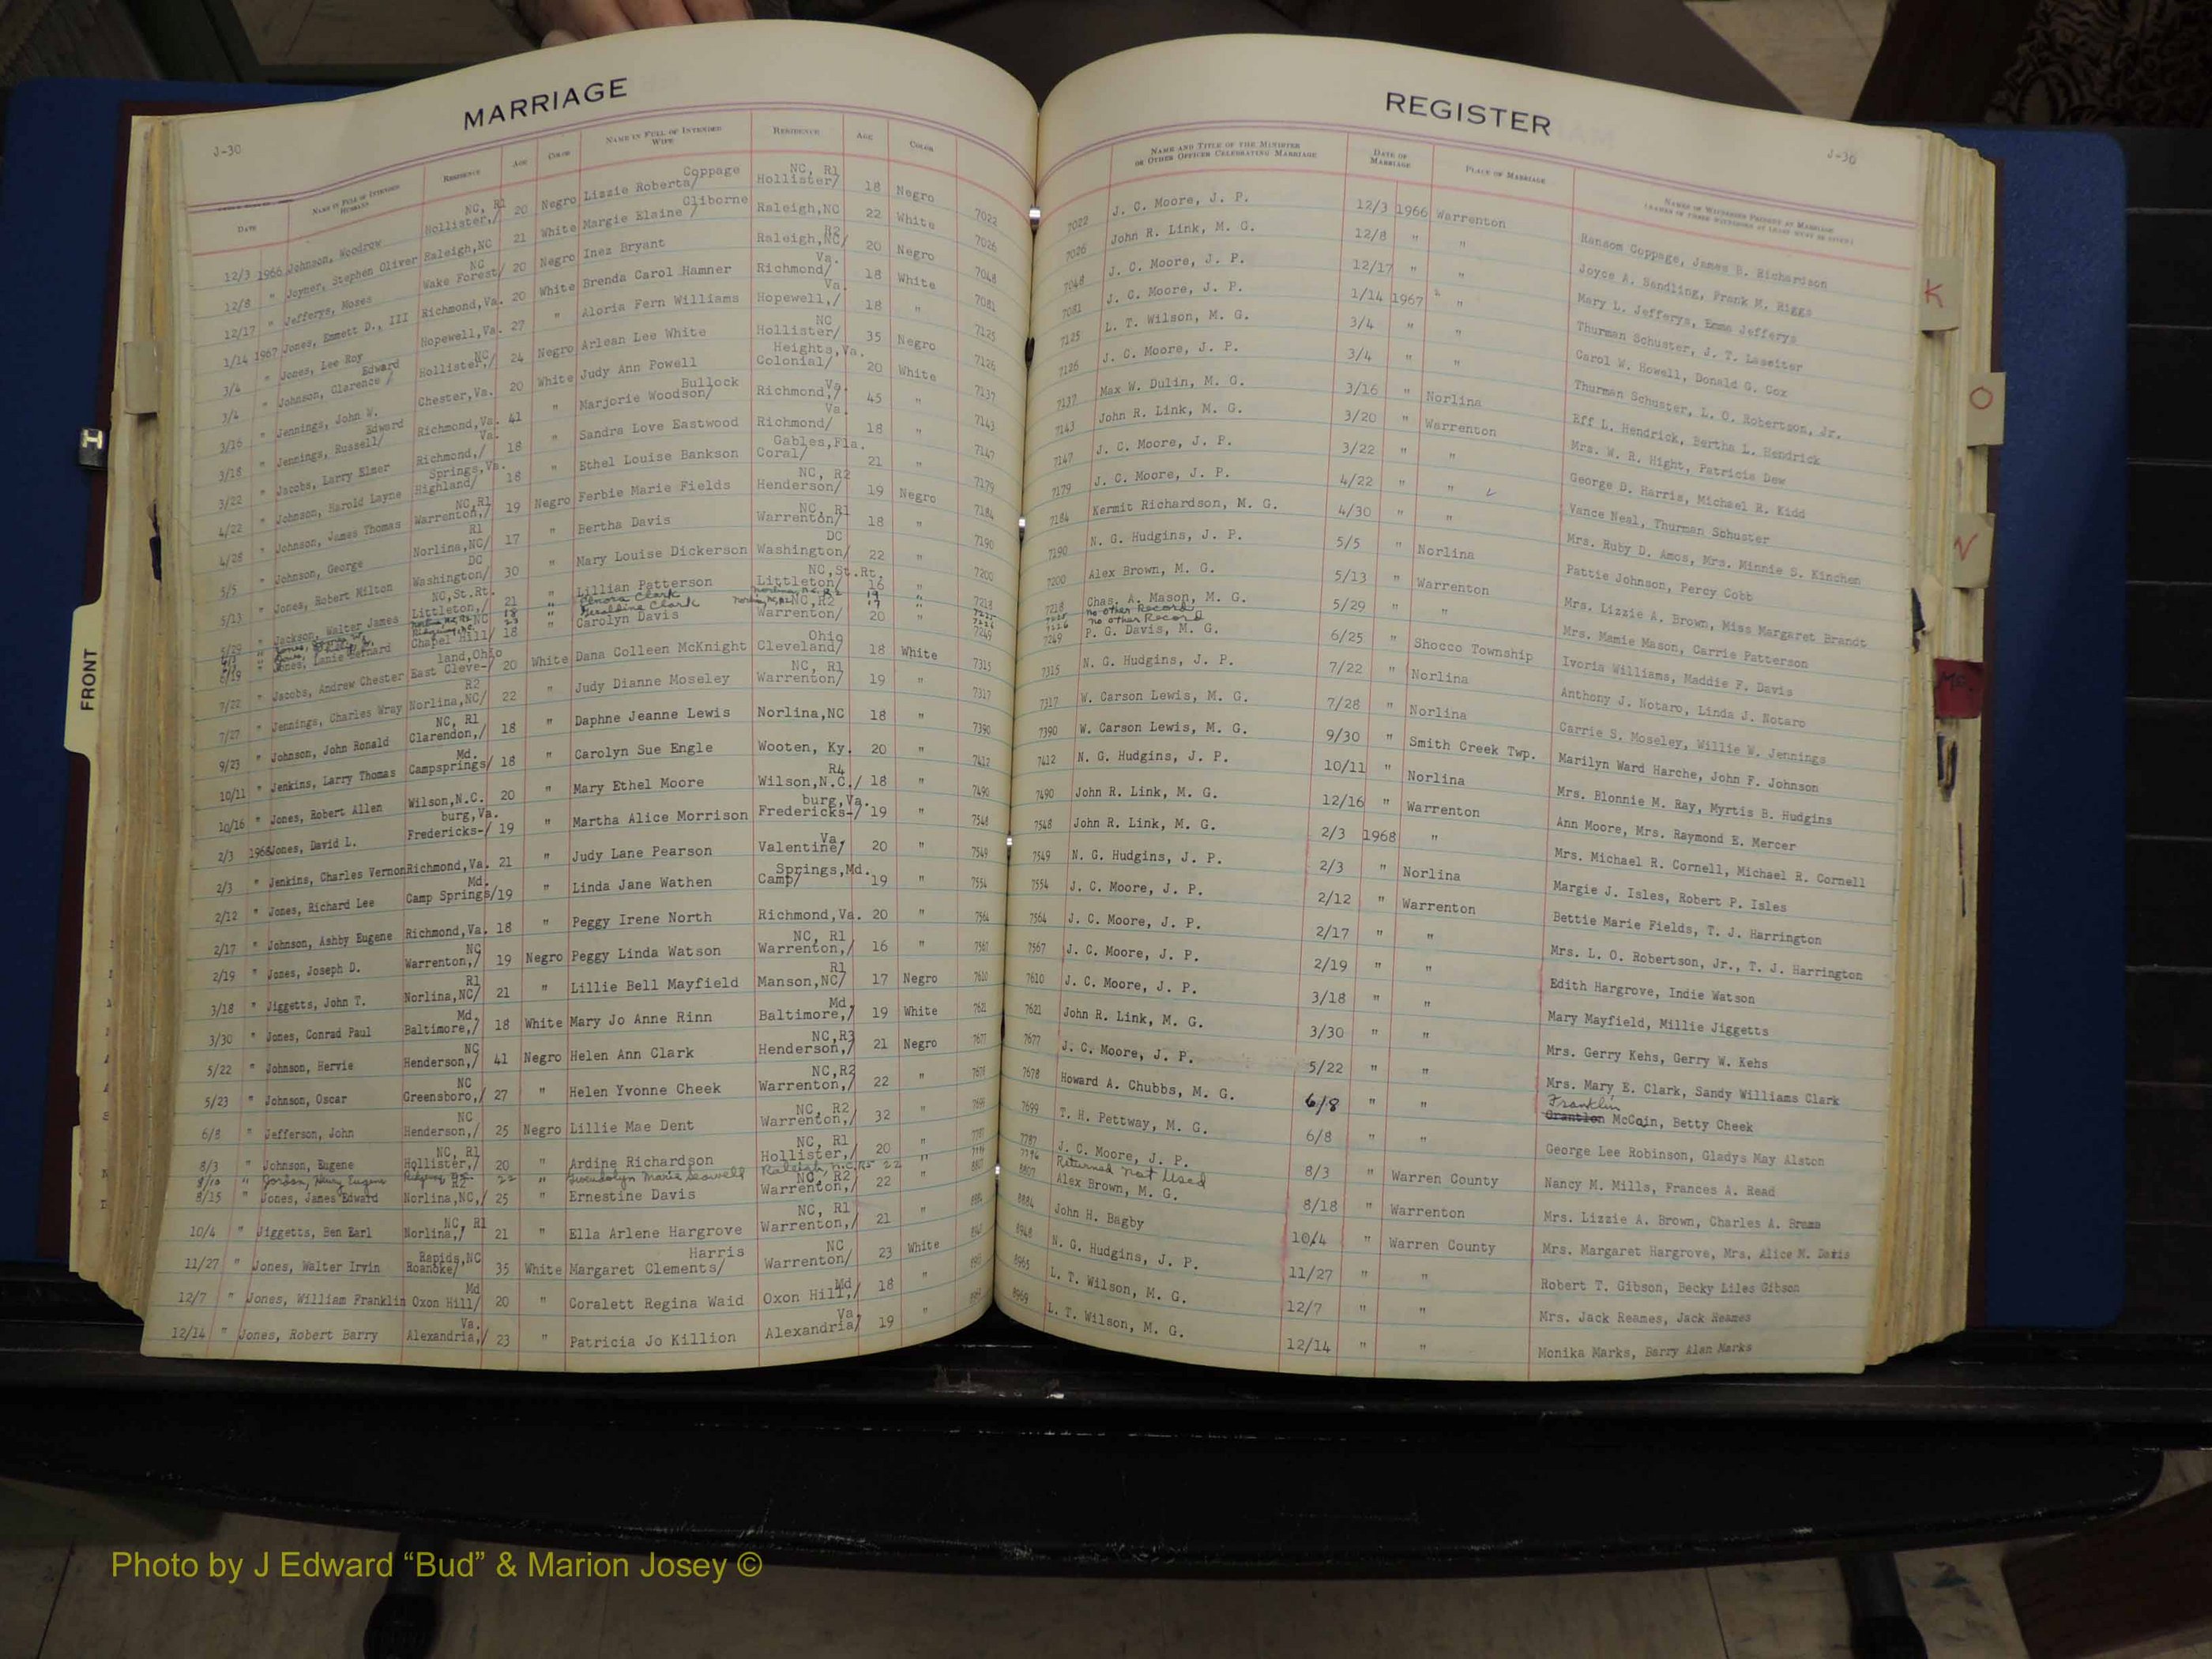 MARRIAGE
J-30
DATE NAME IN FULL OF INTENDED HUSBAND RESIDENCE AGE COLOR NAME IN FULL OF INTENDED WIFE RESIDENCE AGE COLOR
12/3 1966 Johnson, Woodrow Hollister,/ NC, R1 20 Negro Lizzie Roberta/ Coppage Hollister/ NC, R1 18 Negro 7022
12/8 " Joyner, Stephen Oliver Raleigh,NC 21 White Margie Elaine / Cliborne Raleigh,NC 22 White 7026
12/17 " Jefferys, Moses Wake Forest/ NC 20 Negro Inez Bryant Raleigh,NC/ R2 20 Negro 7048
1/14 1967 Jones, Emmett D., III Richmond,Va. 20 White Brenda Carol Hamner Richmond/ Va. 18 White 7081
3/4 " Jones, Lee Roy Hopewell,Va. 27 " Aloria Fern Williams Hopewell,/ Va. 18 " 7125
3/4 " Johnson, Clarence / Edward Hollister,/ NC 24 Negro Arlean Lee White Hollister/ NC 35 Negro 7126
3/16 " Jennings, John W. Chester,Va. 20 White Judy Ann Powell Colonial/ Heights,Va. 20 White 7137
3/18 " Jennings, Russell/ Edward Richmond,Va. 41 " Marjorie Woodson/ Bullock Richmond,/ Va. 45 " 7143
3/22 " Jacobs, Larry Elmer Richmond,/ Va. 18 " Sandra Love Eastwood Richmond/ Va. 18 " 7147
4/22 " Johnson, Harold Layne Highland/ Springs,Va. 18 " Ethel Louise Bankson Coral/ Gables,Fla. 21 " 7179
4/28 " Johnson, James Thomas Warrenton,/ NC,R1 19 Negro Ferbie Marie Fields Henderson/ NC, R2 19 Negro 7184
5/5 " Johnson, George Norlina,NC/ R1 17 " Bertha Davis Warrenton/ NC, R1 18 " 7190
5/13 " Jones, Robert Milton Washington/ DC 30 " Mary Louise Dickerson Washington/ DC 22 " 7200
5/29 " Jackson, Walter James Littleton,/ NC,St.Rt. 21 " Lillian Patterson Littleton/ NC,St.Rt. 16 " 7218
Clark 19
Geraldine Clark
6/19 " Jones, Lanie Bernard Chapel Hill/ NC 18 " Carolyn Davis Warrenton/ NC,R2 20 " 7249
7/22 " Jacobs, Andrew Chester East Cleve-/ land,Ohio 20 White Dana Colleen McKnight Cleveland/ Ohio 18 White 7315
7/27 " Jennings, Charles Wray Norlina,NC/ R2 22 " Judy Dianne Moseley Warrenton/ NC, R1 19 " 7317
9/23 " Johnson, John Ronald Clarendon,/ NC, R1 18 " Daphne Jeanne Lewis Norlina,NC 18 " 7390
10/11 " Jenkins, Larry Thomas Campsprings/ Md. 18 " Carolyn Sue Engle Wooten, Ky. 20 " 7412
10/16 " Jones, Robert Allen Wilson,N.C. 20 " Mary Ethel Moore Wilson,N.C./ R4 18 " 7490
2/3 1968 Jones, David L. Fredericks-/ burg,Va. 19 " Martha Alice Morrison Fredericks-/ burg,Va. 19 " 7548
2/3 " Jenkins, Charles Vernon Richmond,Va. 21 " Judy Lane Pearson Valentine/ Va. 20 " 7549
2/12 " Jones, Richard Lee Camp Springs/ Md. 19 " Linda Jane Wathen Camp/ Springs,Md. 19 " 7554
2/17 " Johnson, Ashby Eugene Richmond,Va. 18 " Peggy Irene North Richmond,Va. 20 " 7564
2/19 " Jones, Joseph D. Warrenton,/ NC 19 Negro Peggy Linda Watson Warrenton,/ NC, R1 16 " 7567
3/18 " Jiggetts, John T. Norlina,NC/ R1 21 " Lillie Bell Mayfield Manson,NC/ R1 17 Negro 7610
3/30 " Jones, Conrad Paul Baltimore,/ Md. 18 White Mary Jo Anne Rinn Baltimore,/ Md. 19 White 7621
5/22 " Johnson, Hervie Henderson,/ NC 41 Negro Helen Ann Clark Henderson,/ NC,R3 21 Negro 7677
5/23 " Johnson, Oscar Greensboro,/ NC 27 " Helen Yvonne Cheek Warrenton,/ NC,R2 22 " 7678
6/8 " Jefferson, John Henderson,/ NC 25 Negro Lillie Mae Dent Warrenton,/ NC, R2 32 " 7699
8/3 " Johnson, Eugene Hollister,/ NC, R1 20 " Ardine Richardson Hollister,/ NC, R1 20 " 7787
8/10 " Jordan, Henry Eugene 22 " Gwendolyn Marie Raleigh, N.C. R5 22 "
8/15 " Jones, James Edward Norlina,NC,/ R2 25 " Ernestine Davis Warrenton,/ NC, R2 22 " 8807
10/4 " Jiggetts, Ben Earl Norlina,/ NC, R1 21 " Ella Arlene Hargrove Warrenton,/ NC, R1 21 " 8884
11/27 " Jones, Walter Irvin Roanoke/ Rapids,NC 35 White Margaret Clements/ Harris Warrenton/ NC 23 White 8948
12/7 " Jones, William Franklin Oxon Hill/ Md 20 " Coralett Regina Waid Oxon Hill,/ Md 18 " 8965
12/14 " Jones, Robert Barry Alexandria,/ Va. 23 " Patricia Jo Killion Alexandria/ Va. 19 " 8969
REGISTER
J-30
NAME AND TITLE OF THE MINISTER OR OTHER OFFICER CELEBRATING MARRIAGE DATE OF MARRIAGE PLACE OF MARRIAGE NAMES OF WITNESSES PRESENT AT MARRIAGE
7022 J. C. Moore, J. P. 12/3 1966 Warrenton Ransom Coppage, James B. Richardson
7026 John R. Link, M. G. 12/8 " " Joyce A. Sandling, Frank M. Riggs
7048 J. C. Moore, J. P. 12/17 " " Mary L. Jefferys, Emma Jefferys
7081 J. C. Moore, J. P. 1/14 1967 " Thurman Schuster, J. T. Lassiter
7125 L. T. Wilson, M. G. 3/4 " " Carol W. Howell, Donald G. Cox
7126 J. C. Moore, J. P. 3/4 " " Thurman Schuster, L. O. Robertson, Jr.
7137 Max W. Dulin, M. G. 3/16 " Norlina Eff L. Hendrick, Bertha L. Hendrick
7143 John R. Link, M. G. 3/20 " Warrenton Mrs. W. R. Hight, Patricia Dew
7147 J. C. Moore, J. P. 3/22 " " George D. Harris, Michael R. Kidd
7179 J. C. Moore, J. P. 4/22 " " Vance Neal, Thurman Schuster
7184 Kermit Richardson, M. G. 4/30 " " Mrs. Ruby D. Amos, Mrs. Minnie S. Kinchen
7190 N. G. Hudgins, J. P. 5/5 " Norlina Pattie Johnson, Percy Cobb
7200 Alex Brown, M. G. 5/13 " Warrenton Mrs. Lizzie A. Brown, Miss Margaret Brandt
7218 Chas. A. Mason, M. G. 5/29 " " Mrs. Mamie Mason, Carrie Patterson
No other Record
No other Record
7249 P. G. Davis, M. G. 6/25 " Shocco Township Ivoria Williams, Maddie F. Davis
7315 N. G. Hudgins, J. P. 7/22 " Norlina Anthony J. Notaro, Linda J. Notaro
7317 W. Carson Lewis, M. G. 7/28 " Norlina Carrie S. Moseley, Willie W. Jennings
7390 W. Carson Lewis, M. G. 9/30 " Smith Creek Twp. Marilyn Ward Harche, John F. Johnson
7412 N. G. Hudgins, J. P. 10/11 " Norlina Mrs. Blonnie M. Ray, Myrtis B. Hudgins
7490 John R. Link, M. G. 12/16 " Warrenton Ann Moore, Mrs. Raymond E. Mercer
7548 John R. Link, M. G. 2/3 1968 " Mrs. Michael R. Cornell, Michael R. Cornell
7549 N. G. Hudgins, J. P. 2/3 " Norlina Margie J. Isles, Robert P. Isles
7554 J. C. Moore, J. P. 2/12 " Warrenton Bettie Marie Fields, T. J. Harrington
7564 J. C. Moore, J. P. 2/17 " " Mrs. L. O. Robertson, Jr., T. J. Harrington
7567 J. C. Moore, J. P. 2/19 " " Edith Hargrove, Indie Watson
7610 J. C. Moore, J. P. 3/18 " " Mary Mayfield, Millie Jiggetts
7621 John R. Link, M. G. 3/30 " " Mrs. Gerry Kehs, Gerry W. Kehs
7677 J. C. Moore, J. P. 5/22 " " Mrs. Mary E. Clark, Sandy Williams Clark
7678 Howard A. Chubbs, M. G. 6/8 " " Franklin McCain, Betty Cheek
7699 T. H. Pettway, M. G. 6/8 " " George Lee Robinson, Gladys May Alston
7787 J. C. Moore, J. P. 8/3 " Warren County Nancy M. Mills, Frances A. Read
7796 Returned not Used
8807 Alex Brown, M. G. 8/18 " Warrenton Mrs. Lizzie A. Brown, Charles A.
8884 John H. Bagby 10/4 " Warren County Mrs. Margaret Hargrove, Mrs. Alice M. Davis
8948 N. G. Hudgins, J. P. 11/27 " " Robert T. Gibson, Becky Liles Gibson
8965 L. T. Wilson, M. G. 12/7 " " Mrs. Jack Reames, Jack Reames
8969 L. T. Wilson, M. G. 12/14 " " Monika Marks, Barry Alan Marks
FRONT
K
O
V
Mc
Photo by J Edward “Bud” & Marion Josey ©